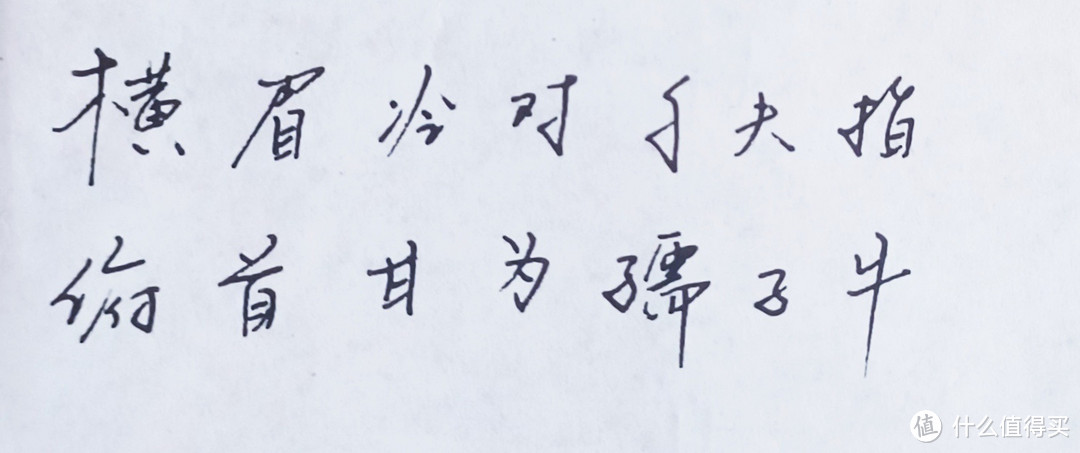 横眉冷对千夫指
俯首甘为孺子牛
值 什么值得买